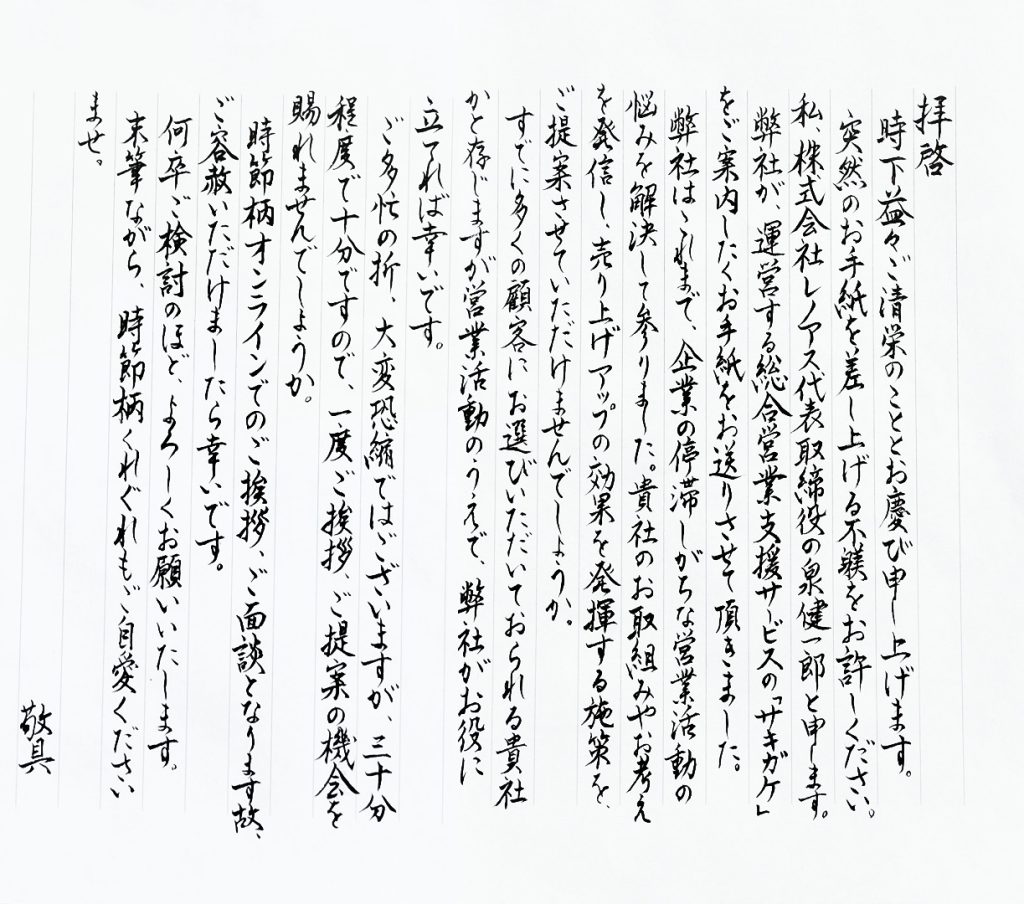 拝啓
時下益々ご清栄のこととお慶び申し上げます。
突然のお手紙を差し上げる不躾をお許しください。
私、株式会社レノアス代表取締役の泉健一郎と申します。
弊社が、運営する総合営業支援サービスの「サキガケ」
をご案内したくお手紙をお送りさせて頂きました。
弊社はこれまで、企業の停滞しがちな営業活動の
悩みを解決して参りました。貴社のお取組みやお考え
を発信し、売り上げアップの効果を発揮する施策を、
ご提案させていただけませんでしょうか。
すでに多くの顧客にお選びいただいておられる貴社
かと存じますが営業活動のうえで、弊社がお役に
立てれば幸いです。
ご多忙の折、大変恐縮ではございますが、三十分
程度で十分ですので、一度ご挨拶、ご提案の機会を
賜れませんでしょうか。
時節柄オンラインでのご挨拶、ご面談となります故、
ご容赦いただけましたら幸いです。
何卒ご検討のほど、よろしくお願いいたします。
末筆ながら、時節柄くれぐれも、ご自愛ください
ませ。
敬具